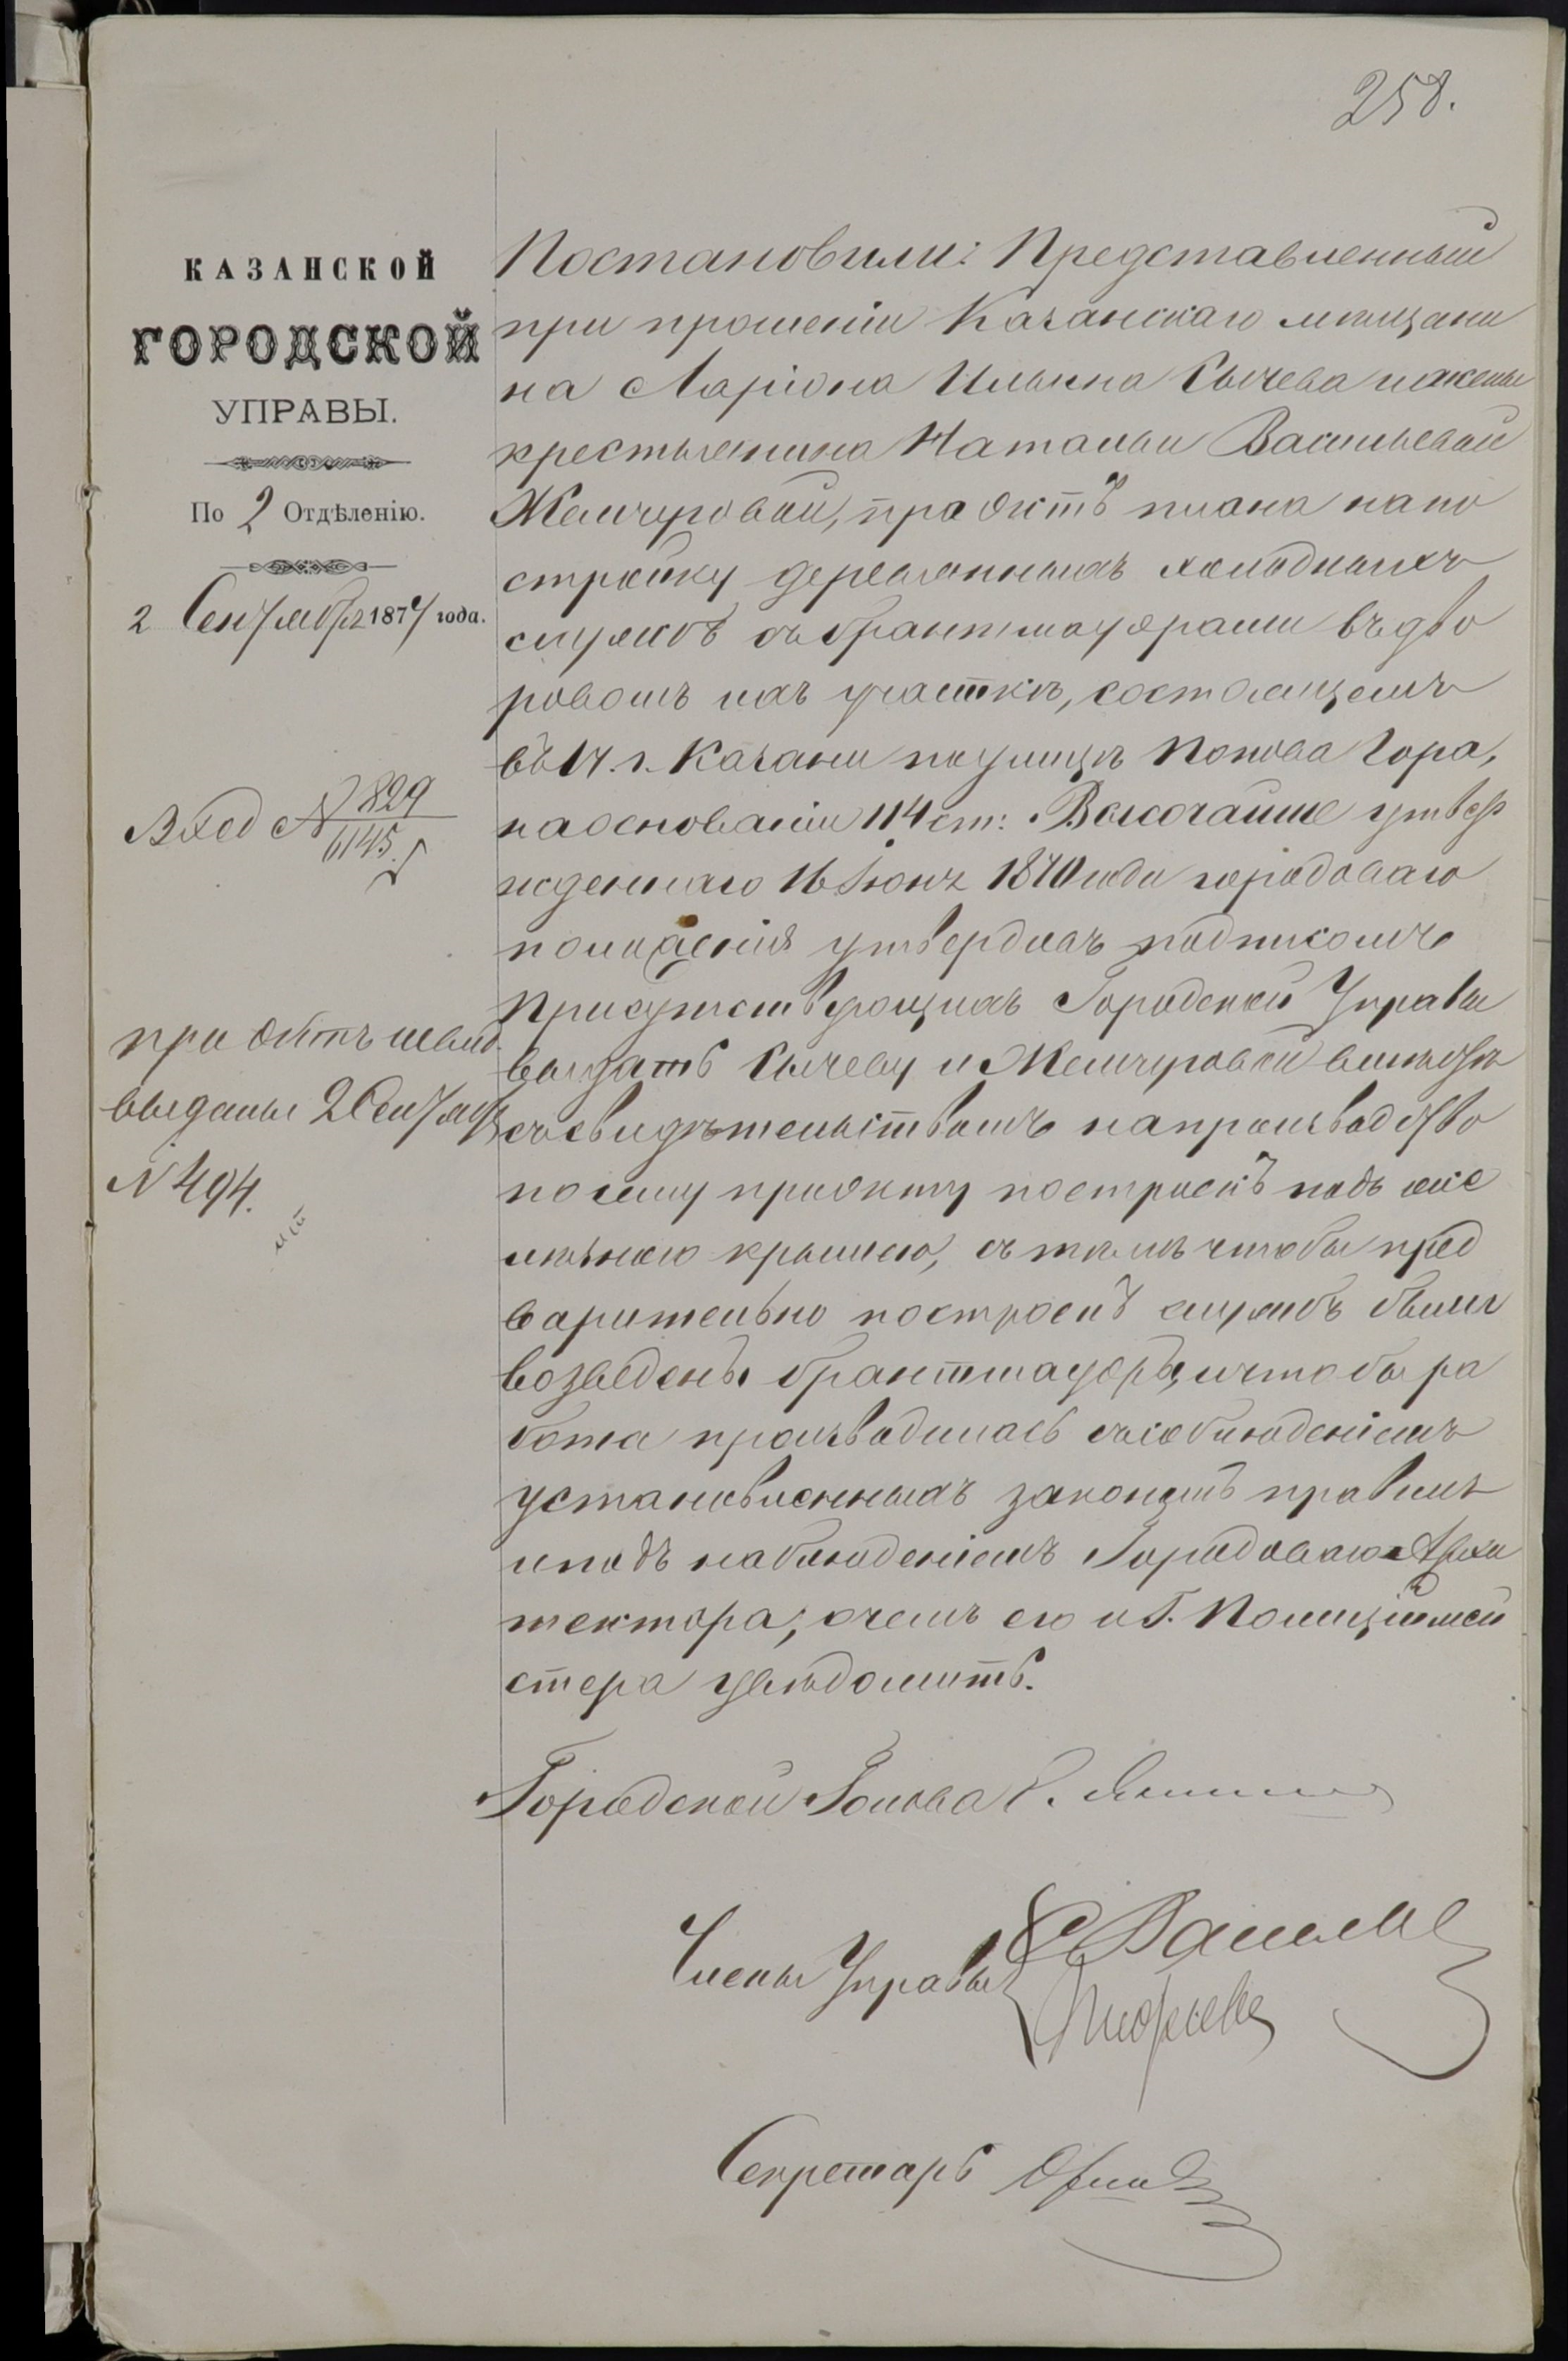 258.
КАЗАНСКОЙ
ГОРОДСКОЙ
УПРАВЫ.
По 2 Отдѣленію.
2 Сентября 1874 года.
Вход № 829
6145
проэктъ
выданы 2 Сентября
№ 494.
Постановили: Представленный
при прошеніи Казанскаго мѣщани
на Ларіона Ильина Сычева и жены
крестьянина Натальи Васильевой
Жемчуговой, проэктъ плана на по
стройку деревянныхъ холодныхъ
службъ съ брантмауэрами въ дво
ровомъ ихъ участкѣ, состоящемъ
въ 1 ч. г. Казани по улицѣ Попова Гора,
на основаніи 114 ст: Высочайше утвер
жденнаго 16 Іюня 1870 года городоваго
положенія утвердивъ подписомъ
Присутствующихъ Городской Управы
выдать Сычеву и Жемчуговой вмѣстѣ
съ свидѣтельствомъ на производство
по сему проэкту построекъ подъ же
лѣзною крышею, съ тѣмъ чтобы пред
варительно построекъ службъ были
возведены брантмауэры, и чтобы ра
бота производилась съ соблюденіемъ
установленныхъ закономъ правилъ
и подъ наблюденіемъ Городоваго Архи
тектора, о чемъ его и Г. Полиціймей
стера увѣдомить.
Городской Голова Э. Янишевскій
Члены Управы
Секретарь